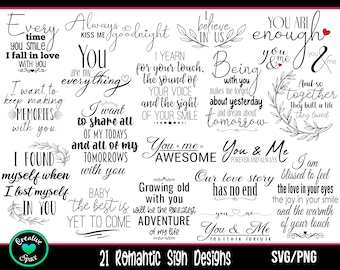 Every
time
YOU SMILE
I fall in love
WITH YOU
Always
KISS ME goodnight
I
believe
IN US
YOU ARE
enough
you
me
YOU
ARE MY
everything
I YEARN
FOR YOUR TOUCH,
THE SOUND OF
YOUR VOICE
AND THE SIGHT
OF YOUR SMILE
Being
WITH YOU
makes me forget
about yesterday
and dream about
tomorrow
And so
together
they built a life
they loved
I want to
keep making
MEMORIES
with you
I want
to share all
OF MY TODAYS
and all of my
TOMORROWS
WITH YOU
You + me
AWESOME
You & Me
FOREVER AND ALWAYS
I FOUND
myself when
I LOST MYSELF
IN YOU
BABY
THE BEST IS
YET TO COME
Growing old
with you
will be the greatest
ADVENTURE
of my life
Our love story
HAS NO END
You & Me
TOGETHER FOREVER
I am
blessed to feel
the love in your eyes
the joy in your smile
and the warmth
of your touch
Creative
Spax
21 Romantic Sign Designs
SVG/PNG